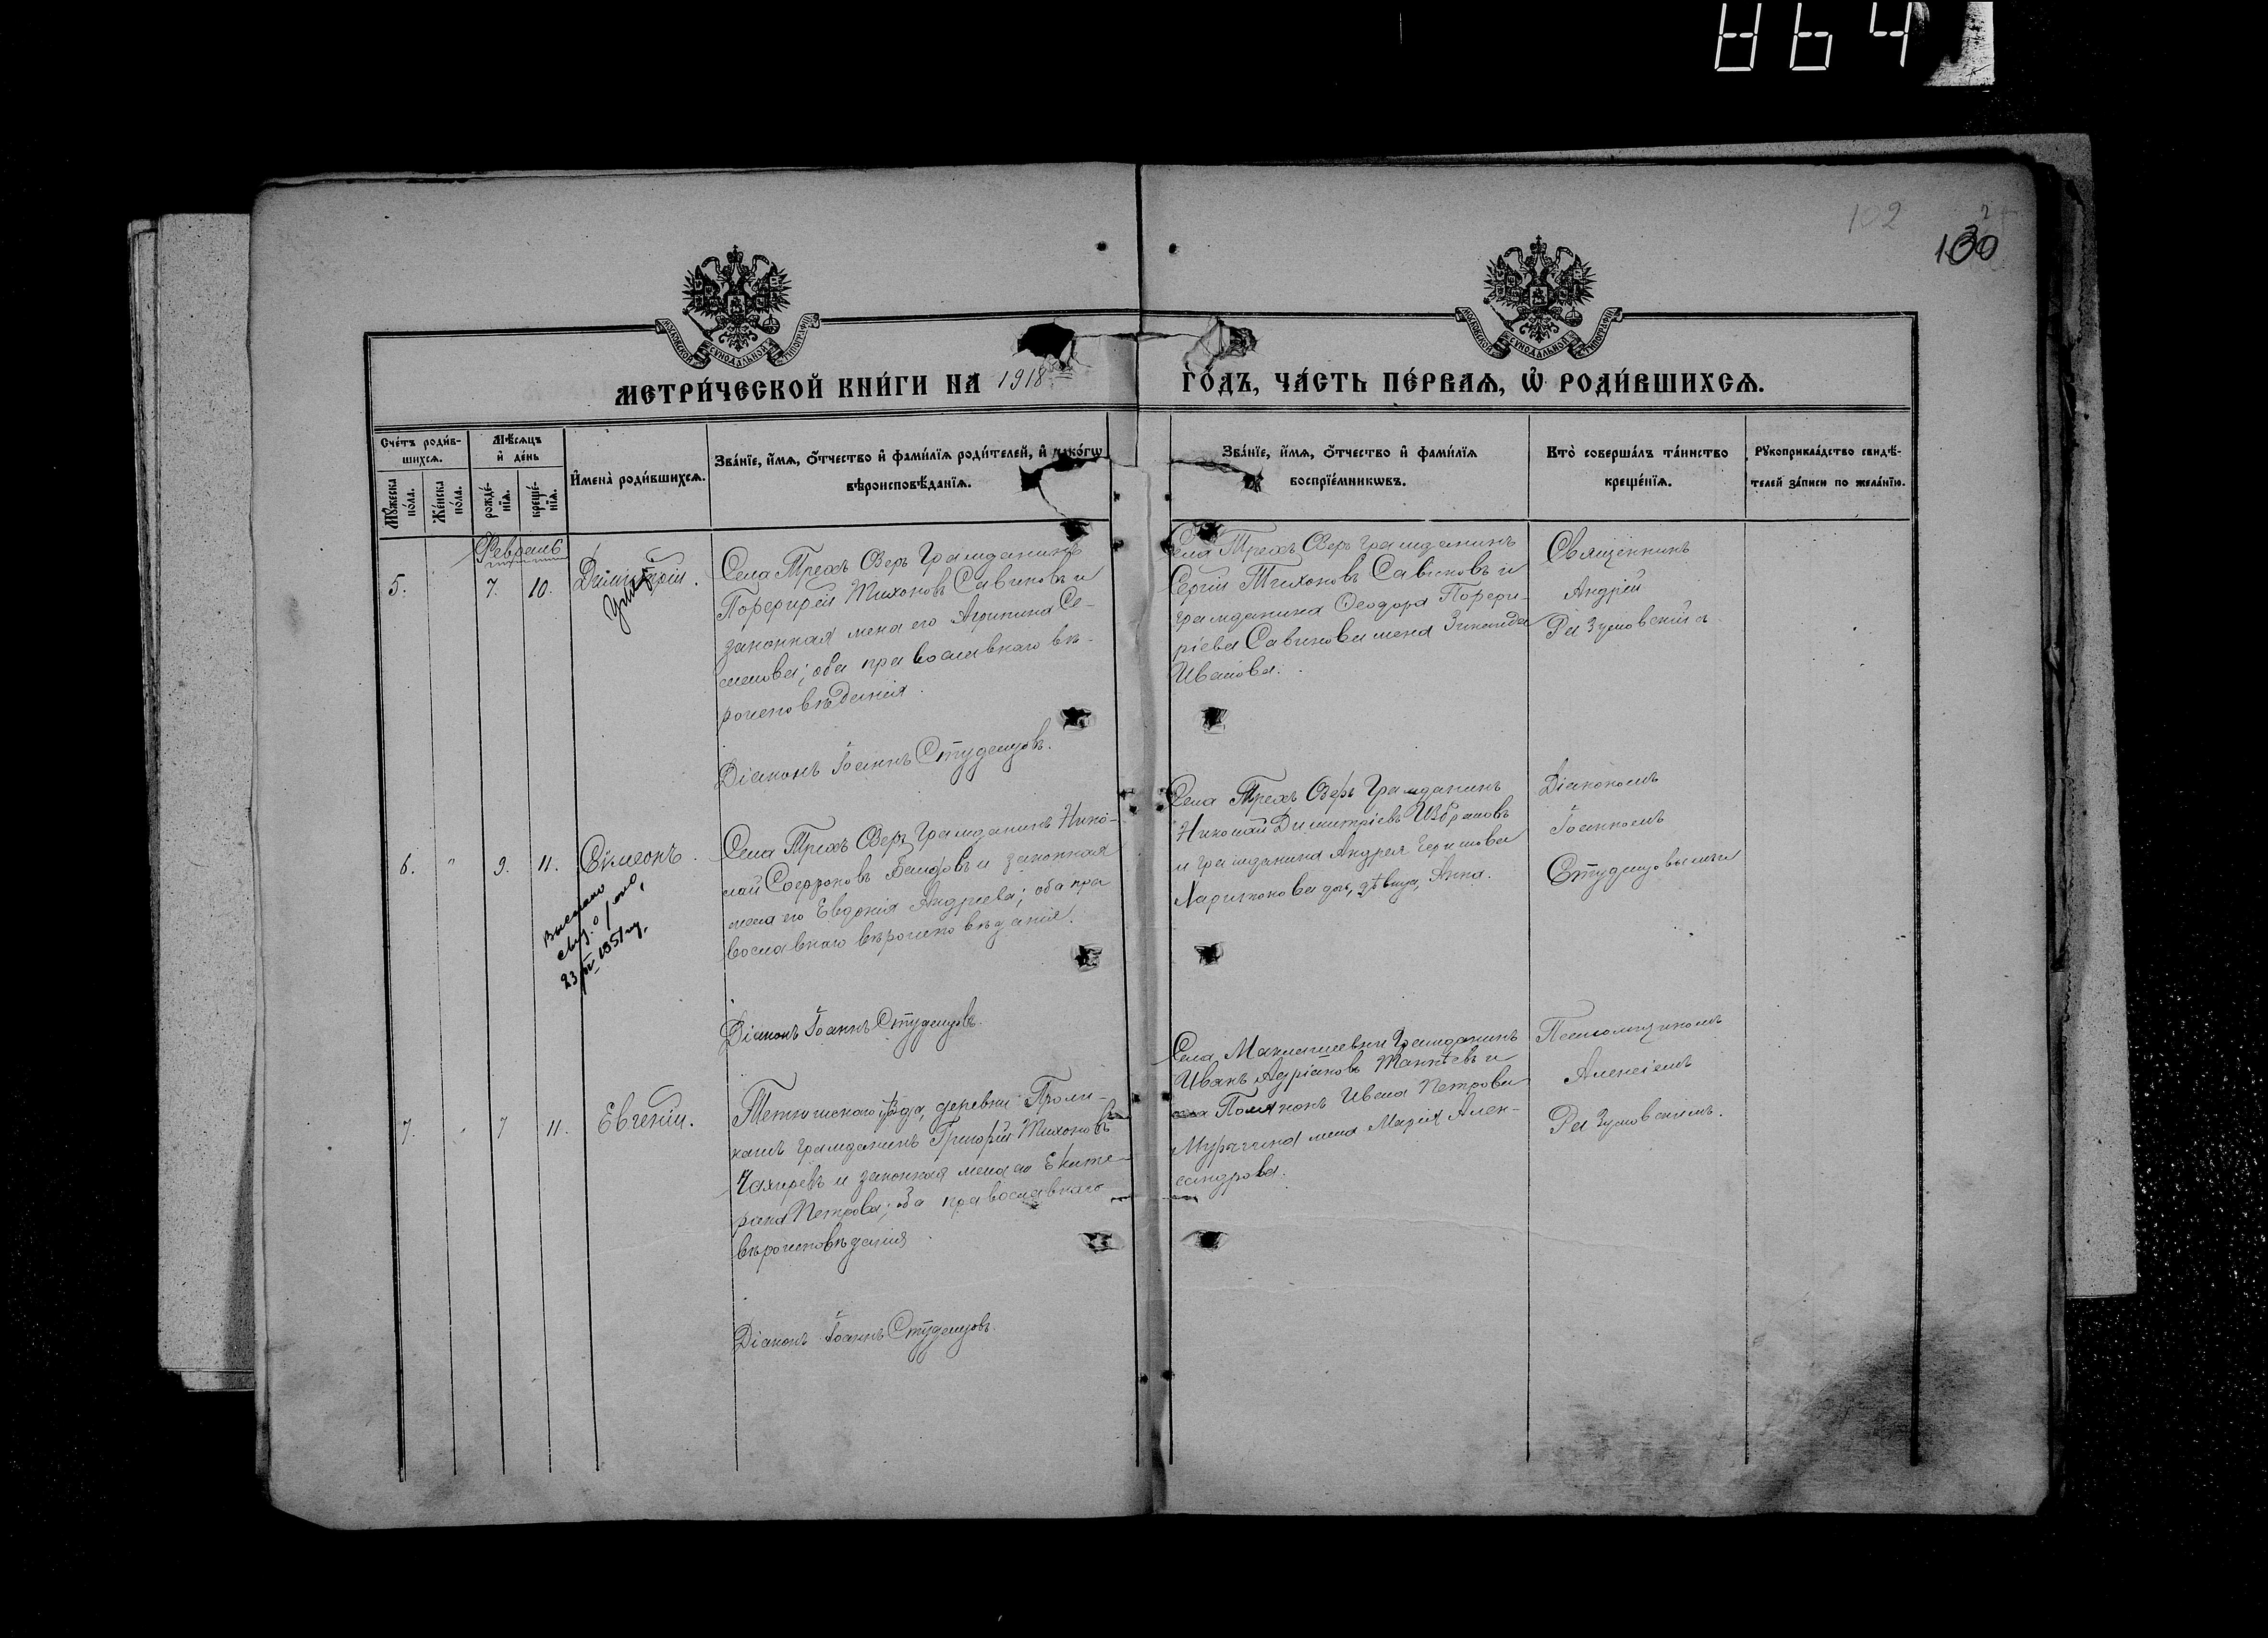 864
102
2
130
МОСКОВСКОЙ СѴНОДАЛЬНОЙ ТИПОГРАФІИ
МОСКОВСКОЙ СѴНОДАЛЬНОЙ ТИПОГРАФІИ
МЕТРИ́ЧЕСКОЙ КНИ́ГИ НА 1918
ГО́ДЪ, ЧА́СТЬ ПЕ́РВАѦ, Ѡ҆ РОДИ́ВШИХСѦ.
Сче́тъ роди́в-
шихсѧ.
Мѣ́сѧцъ
и҆ де́нь
Мꙋ́жеска
по́ла.
Же́нска
по́ла.
рожде́-
нїѧ.
креще́-
нїѧ.
И҆мена̀ роди́вшихсѧ.
Зва́нїе, и҆́мѧ, ѻ҆́тчество и҆ фами́лїѧ роди́телей, и҆ како́гѡ
вѣроисповѣ́данїѧ.
Зва́нїе, и҆́мѧ, ѻ҆́тчество и҆ фами́лїѧ
воспрїе́мникѡвъ.
Кто̀ соверша́лъ та́инство
креще́нїѧ.
Рꙋкоприкла́дство свидѣ́-
телей за́писи по жела́нїю.
Февраль
5. 7. 10. Димитрій.
Села Трехъ Озеръ гражданинъ
Порфирій Тихоновъ Савиновъ и
законная жена его Агрипина Се-
менова; оба православнаго вѣ-
роисповѣданія.
Діаконъ Іоаннъ Студенцовъ.
Села Трехъ Озеръ гражданинъ
Сергій Тихоновъ Савиновъ и
гражданина Ѳеодора Порфи-
ріева Савинова жена Зинаида
Иванова.
Священникъ
Андрей
Разумовскій
6. " 9. 11. Сѵмеонъ.
Выслано
свид. о рожд.
23/IV 1951 г.
Села Трехъ Озеръ гражданинъ Нико-
лай Софроновъ и законная
жена его Евдокія Андреева; оба пра
вославнаго вѣроисповѣданія.
Діаконъ Іоаннъ Студенцовъ.
Села Трехъ Озеръ гражданинъ
Николай Димитріевъ Избрановъ
и гражданина Андрея
Харитонова дочь, дѣвица, Анна.
Діакономъ
Іоанномъ
Студенцовымъ
7. " 7 11. Евгеній.
Тетюшскаго уѣзда, деревни
гражданинъ Григорій Тихоновъ
и законная жена его Екате-
рина Петрова; оба православнаго
вѣроисповѣданія.
Діаконъ Іоаннъ Студенцовъ.
Села гражданинъ
Иванъ Адріановъ и
села Полянокъ Ивана Петрова
жена Марія Алек-
сандрова.
Псаломщикомъ
Алексіемъ
Разумовскимъ.